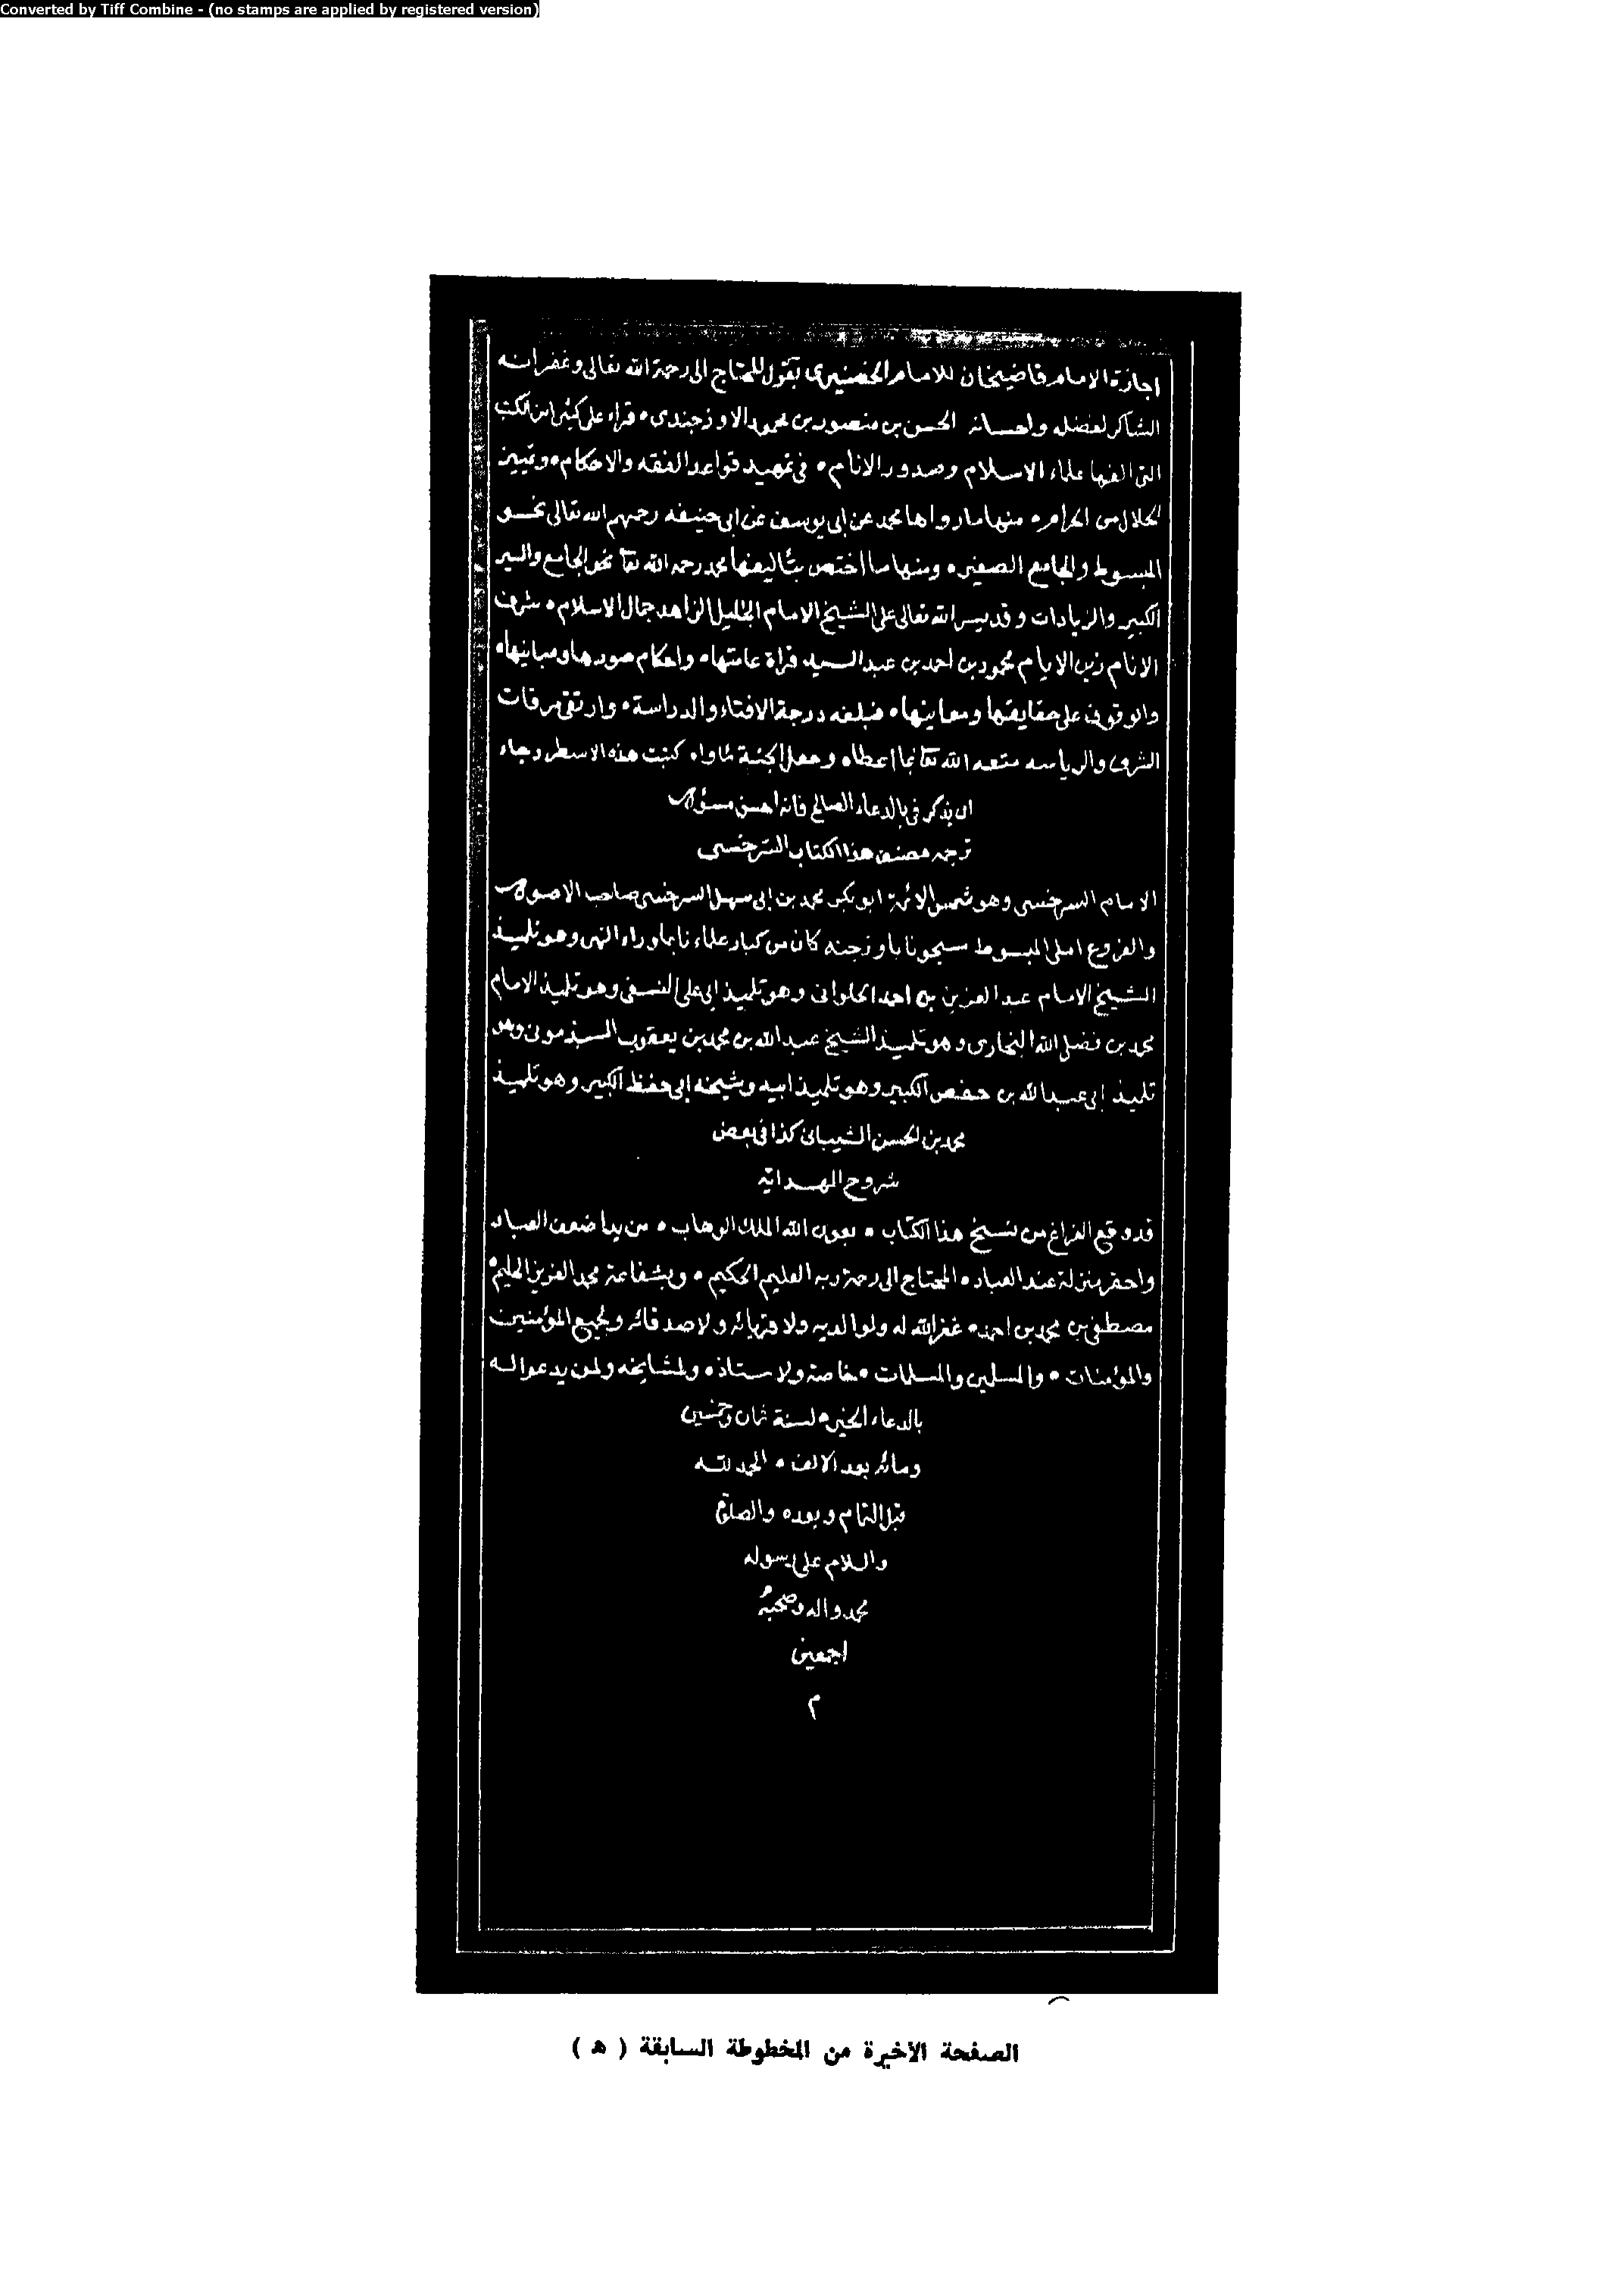 Converted by Tiff Combine - (no stamps are applied by registered version)
اجازة الامام قاضيخان للامام الحصيرى يقول المحتاج الى رحمة الله تعالى وغفرانه
الشاكر لفضله واحسانه الحسن بن منصور بن محمود الاوزجندى • قراء على كثيرا من الكتب
التى الفها علماء الاسلام وصدور الانام • فى تمهيد قواعد الفقه والاحكام • وتمييز
الحلال من الحرام • منها ما رواها محمد عن ابى يوسف عن ابى حنيفه رحمهم الله تعالى نحو
المبسوط والجامع الصغير • ومنها ما اختص بتأليفها محمد رحمه الله تعا نحو الجامع والسير
الكبير والزيادات وقد يسر الله تعالى على الشيخ الامام الجليل الزاهد جمال الاسلام • شرف
الانام زين الايام محمود بن احمد بن عبد السيد قراة عامتها • واحكام صورها ومبانيها •
والوقوف على حقايقها ومعاينها • فبلغه درجة الافتاء والدراسة • وارتقى مرقات
الشرف والرياسه متعه الله تعا بما اعطاه وجعل الجنة مأواه كتبت هذه الاسطر رجاء
ان يذكرنى بالدعاء الصالح فانه احسن مسؤول
ترجمه مصنف هذا الكتاب السرخسى
الامام السرخسى وهو شمس الائمة ابو بكر محمد بن ابى سهل السرخسى صاحب الاصول
والفروع املى المبسوط مسجونا باوزجند كان من كبار علماءنا بماوراء النهر وهو تلميذ
الشيخ الامام عبد العزيز بن احمد الحلوانى وهو تلميذ ابى على النسفى وهو تلميذ الامام
محمد بن فضل الله البخارى وهو تلميذ الشيخ عبد الله بن محمد بن يعقوب السبذمونى وهو
تلميذ ابى عبد الله بن حفص الكبير وهو تلميذ ابيه وشيخه ابى حفظ الكبير وهو تلميذ
محمد بن الحسن الشيبانى كذا فى بعض
شروح الهداية
قد وقع الفراغ من نسخ هذا الكتاب • بعون الله الملك الوهاب • من يد اضعف العباد
واحقر بنزلة عند العباد • المحتاج الى رحمة ربه العليم الحكيم • وبشفاعة محمد العزيز الحليم •
مصطفى بن محمد بن احمد • غفر الله له ولوالديه ولاقربائه ولاصدقائه ولجميع المؤمنين
والمؤمنات • والمسلمين والمسلمات • خاصة ولاستاذه • ولمشايخه ولمن يدعو اله
بالدعاء الخير • لسنة ثمان وخمسين
ومائه بعد الالف • الحمد لله
قبل التمام وبعده والصلوة
والسلام على رسوله
محمد واله وصحبه
اجمعين
م
الصفحة الأخيرة من المخطوطة السابقة ( هـ )